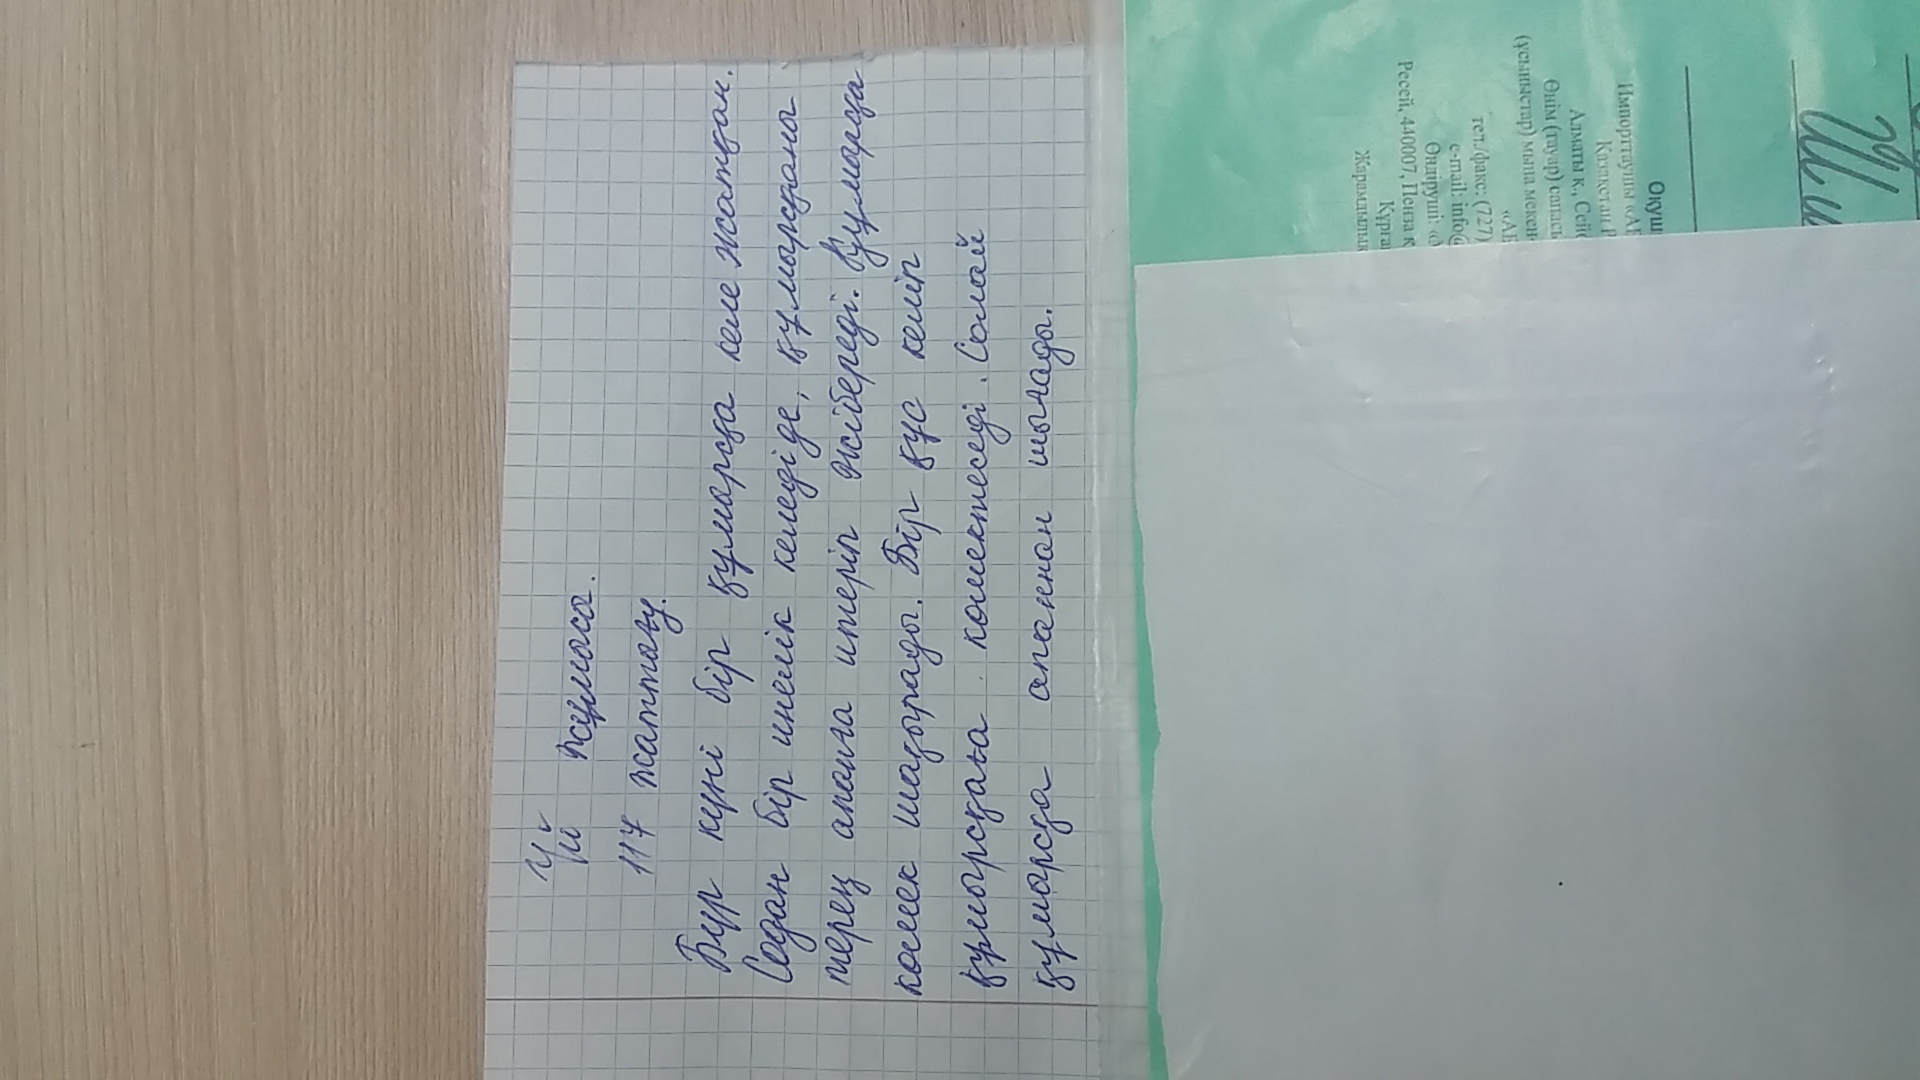 Үй жұмыса.
117 жаттау.
Бұр күні бір құмарсқа келе жатқан.
Содан бір инелік келеді де, құмырсқаны
терең апанға итеріп жібереді. Құмарсқа
комек шақырады. Бір құс келіп
құмырсқаға комектеседі. Солай
құмарсқа апаннан шығады.
Оқуш
Импорттаушы «А
Қазақстан Р
Алматы қ., Сей
Өнім (тауар) сапас
(ұсыныстар) мына мекен
«А
тел./факс: (727)
e-mail: info@
Өндіруші: «
Ресей, 440007, Пенза қ
Құрға
Жарамдылы